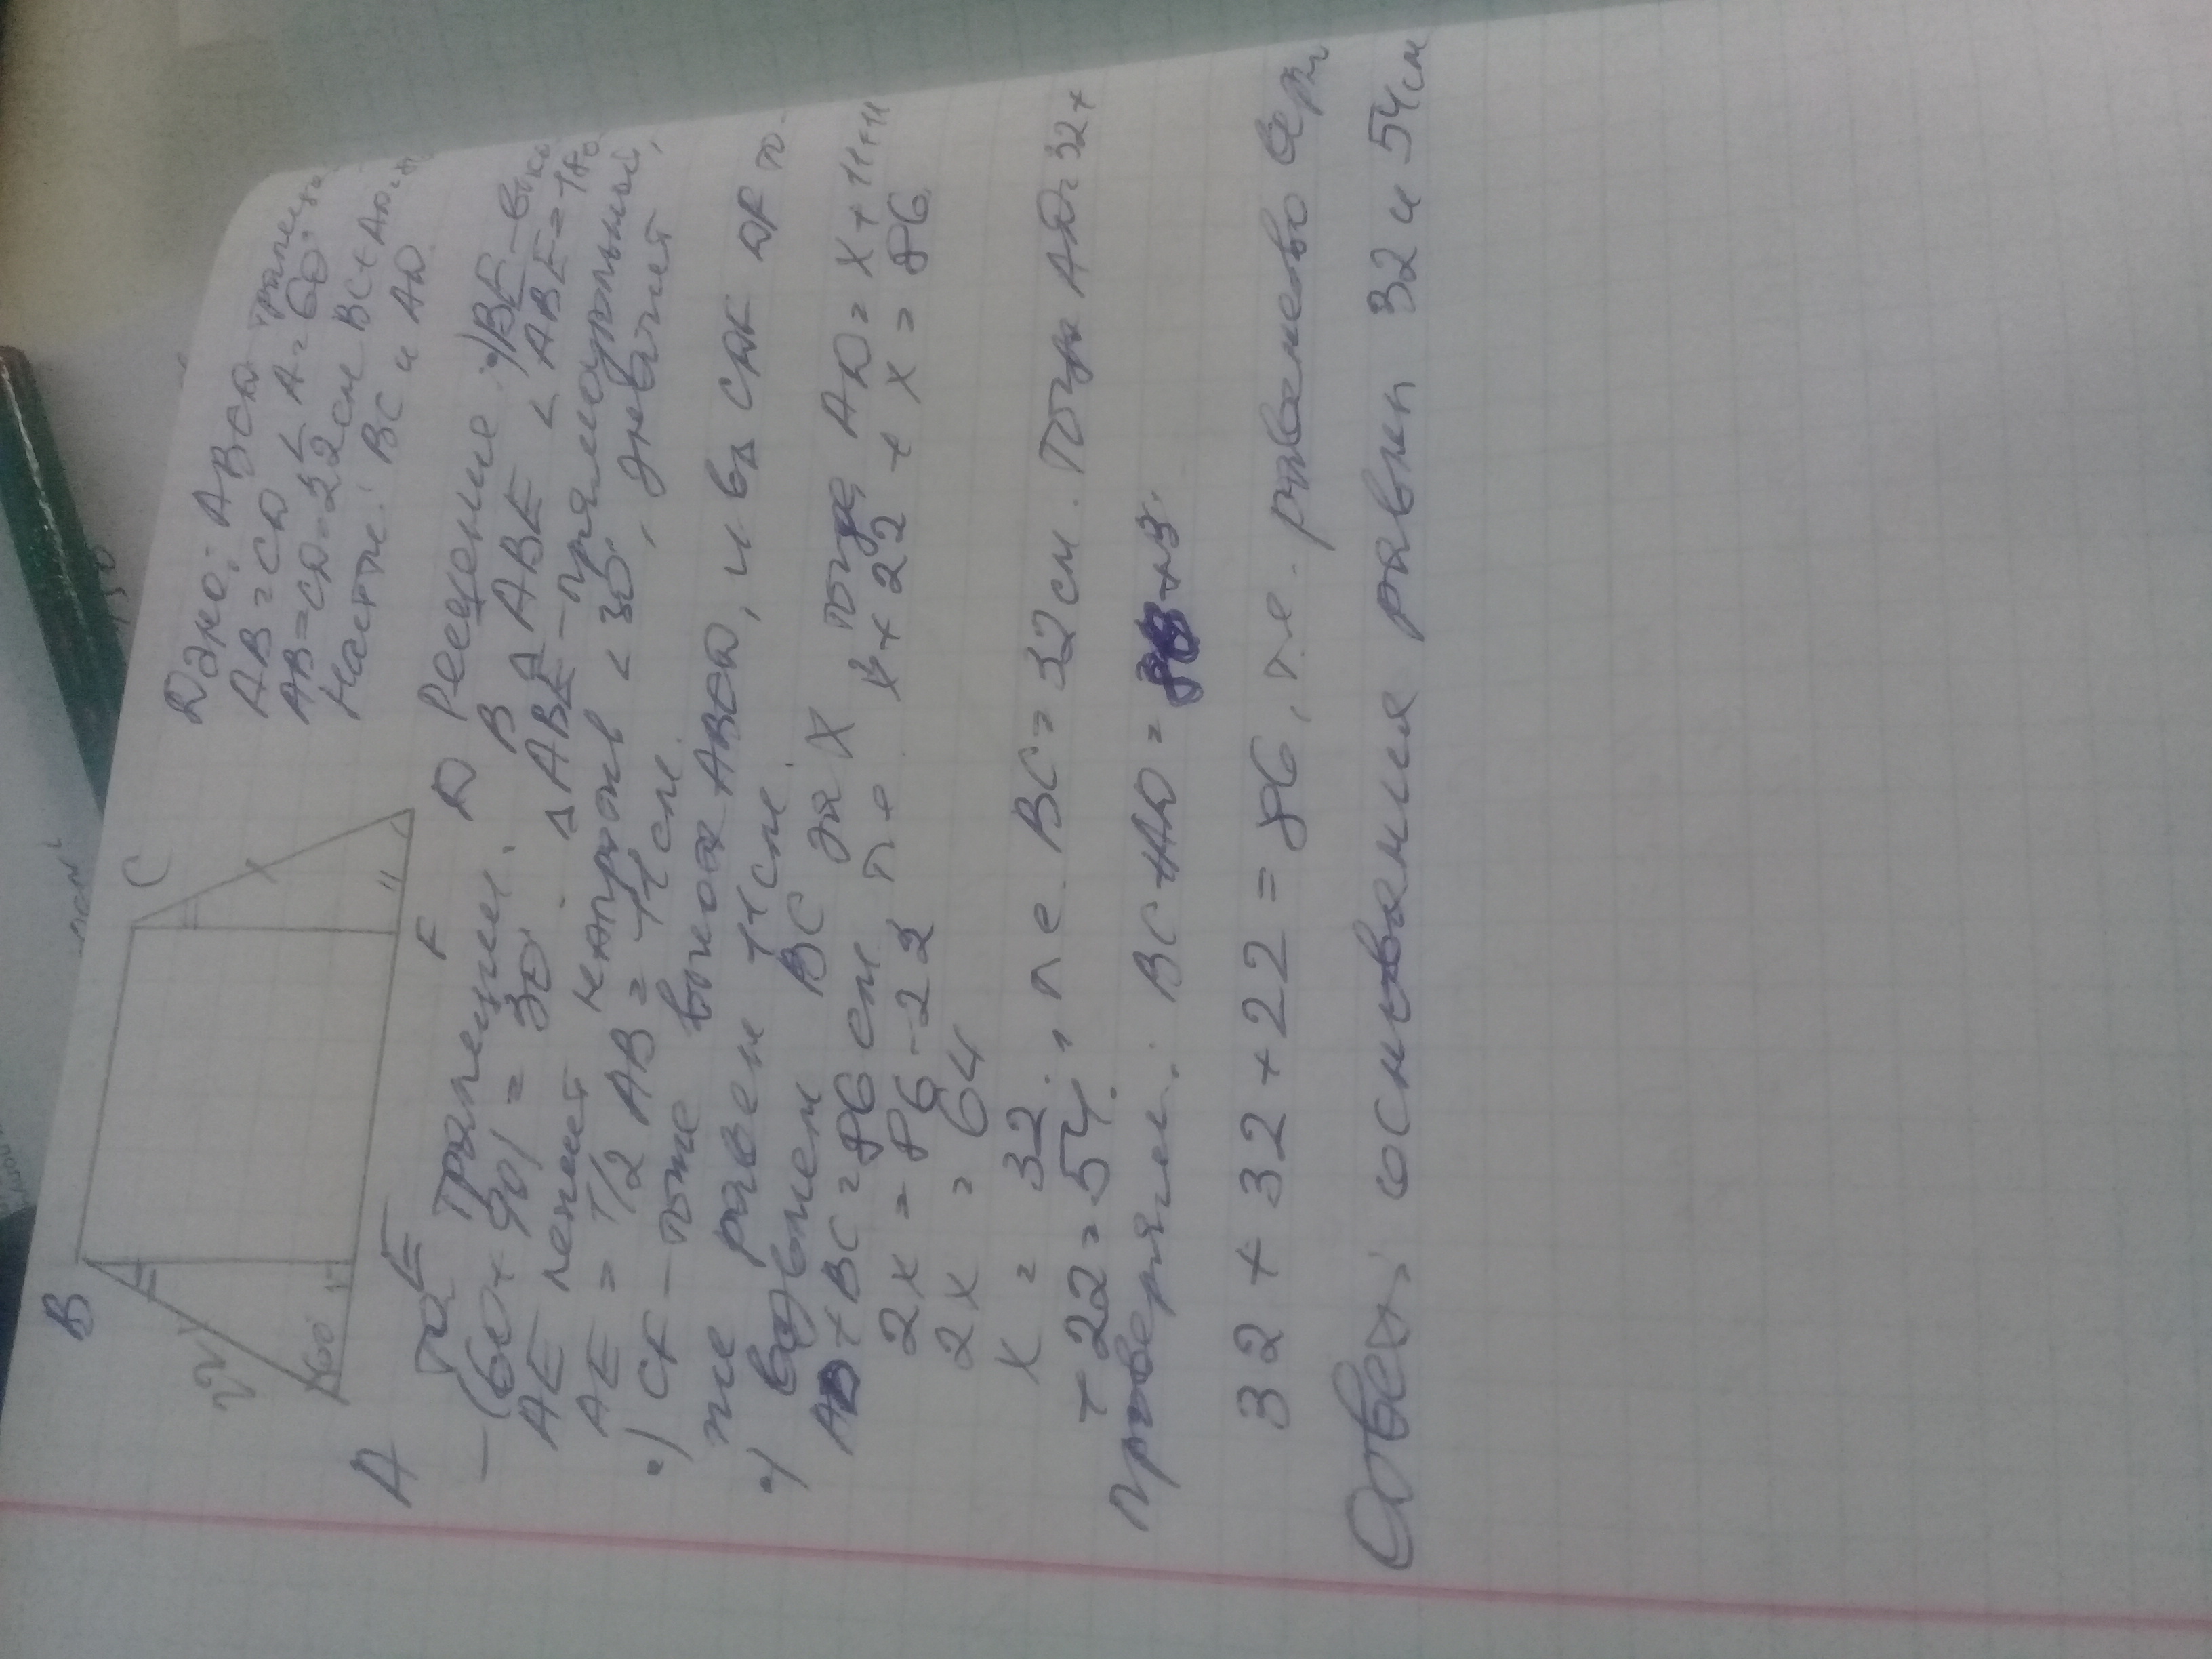 B
C
22
60°
A
E
F
D
Дано: ABCD
AB = CD ∠A = 60°
AB = CD = 22 см BC + AD
Найти: BC и AD
Решение: 1) BE
трапеции. В Δ ABE ∠ABE = 180
- (60 + 90) = 30°. Δ ABE - прямоугольный,
AE лежит напротив ∠30°, значит
AE = 1/2 AB = 11 см.
2) CF - тоже высота ABCD, и в Δ CDF DF то-
же равен 11 см.
3) возьмем BC за X тогда AD = X + 11 + 11
AD + BC = 86 см т.е. X + 22 + X = 86
2X = 86 - 22
2X = 64
X = 32, т.е. BC = 32 см. Тогда AD = 32 +
+ 22 = 54.
Проверяем: BC + AD =
32 + 32 + 22 = 86, т.е. равенство
Ответ: основания равны 32 и 54 см